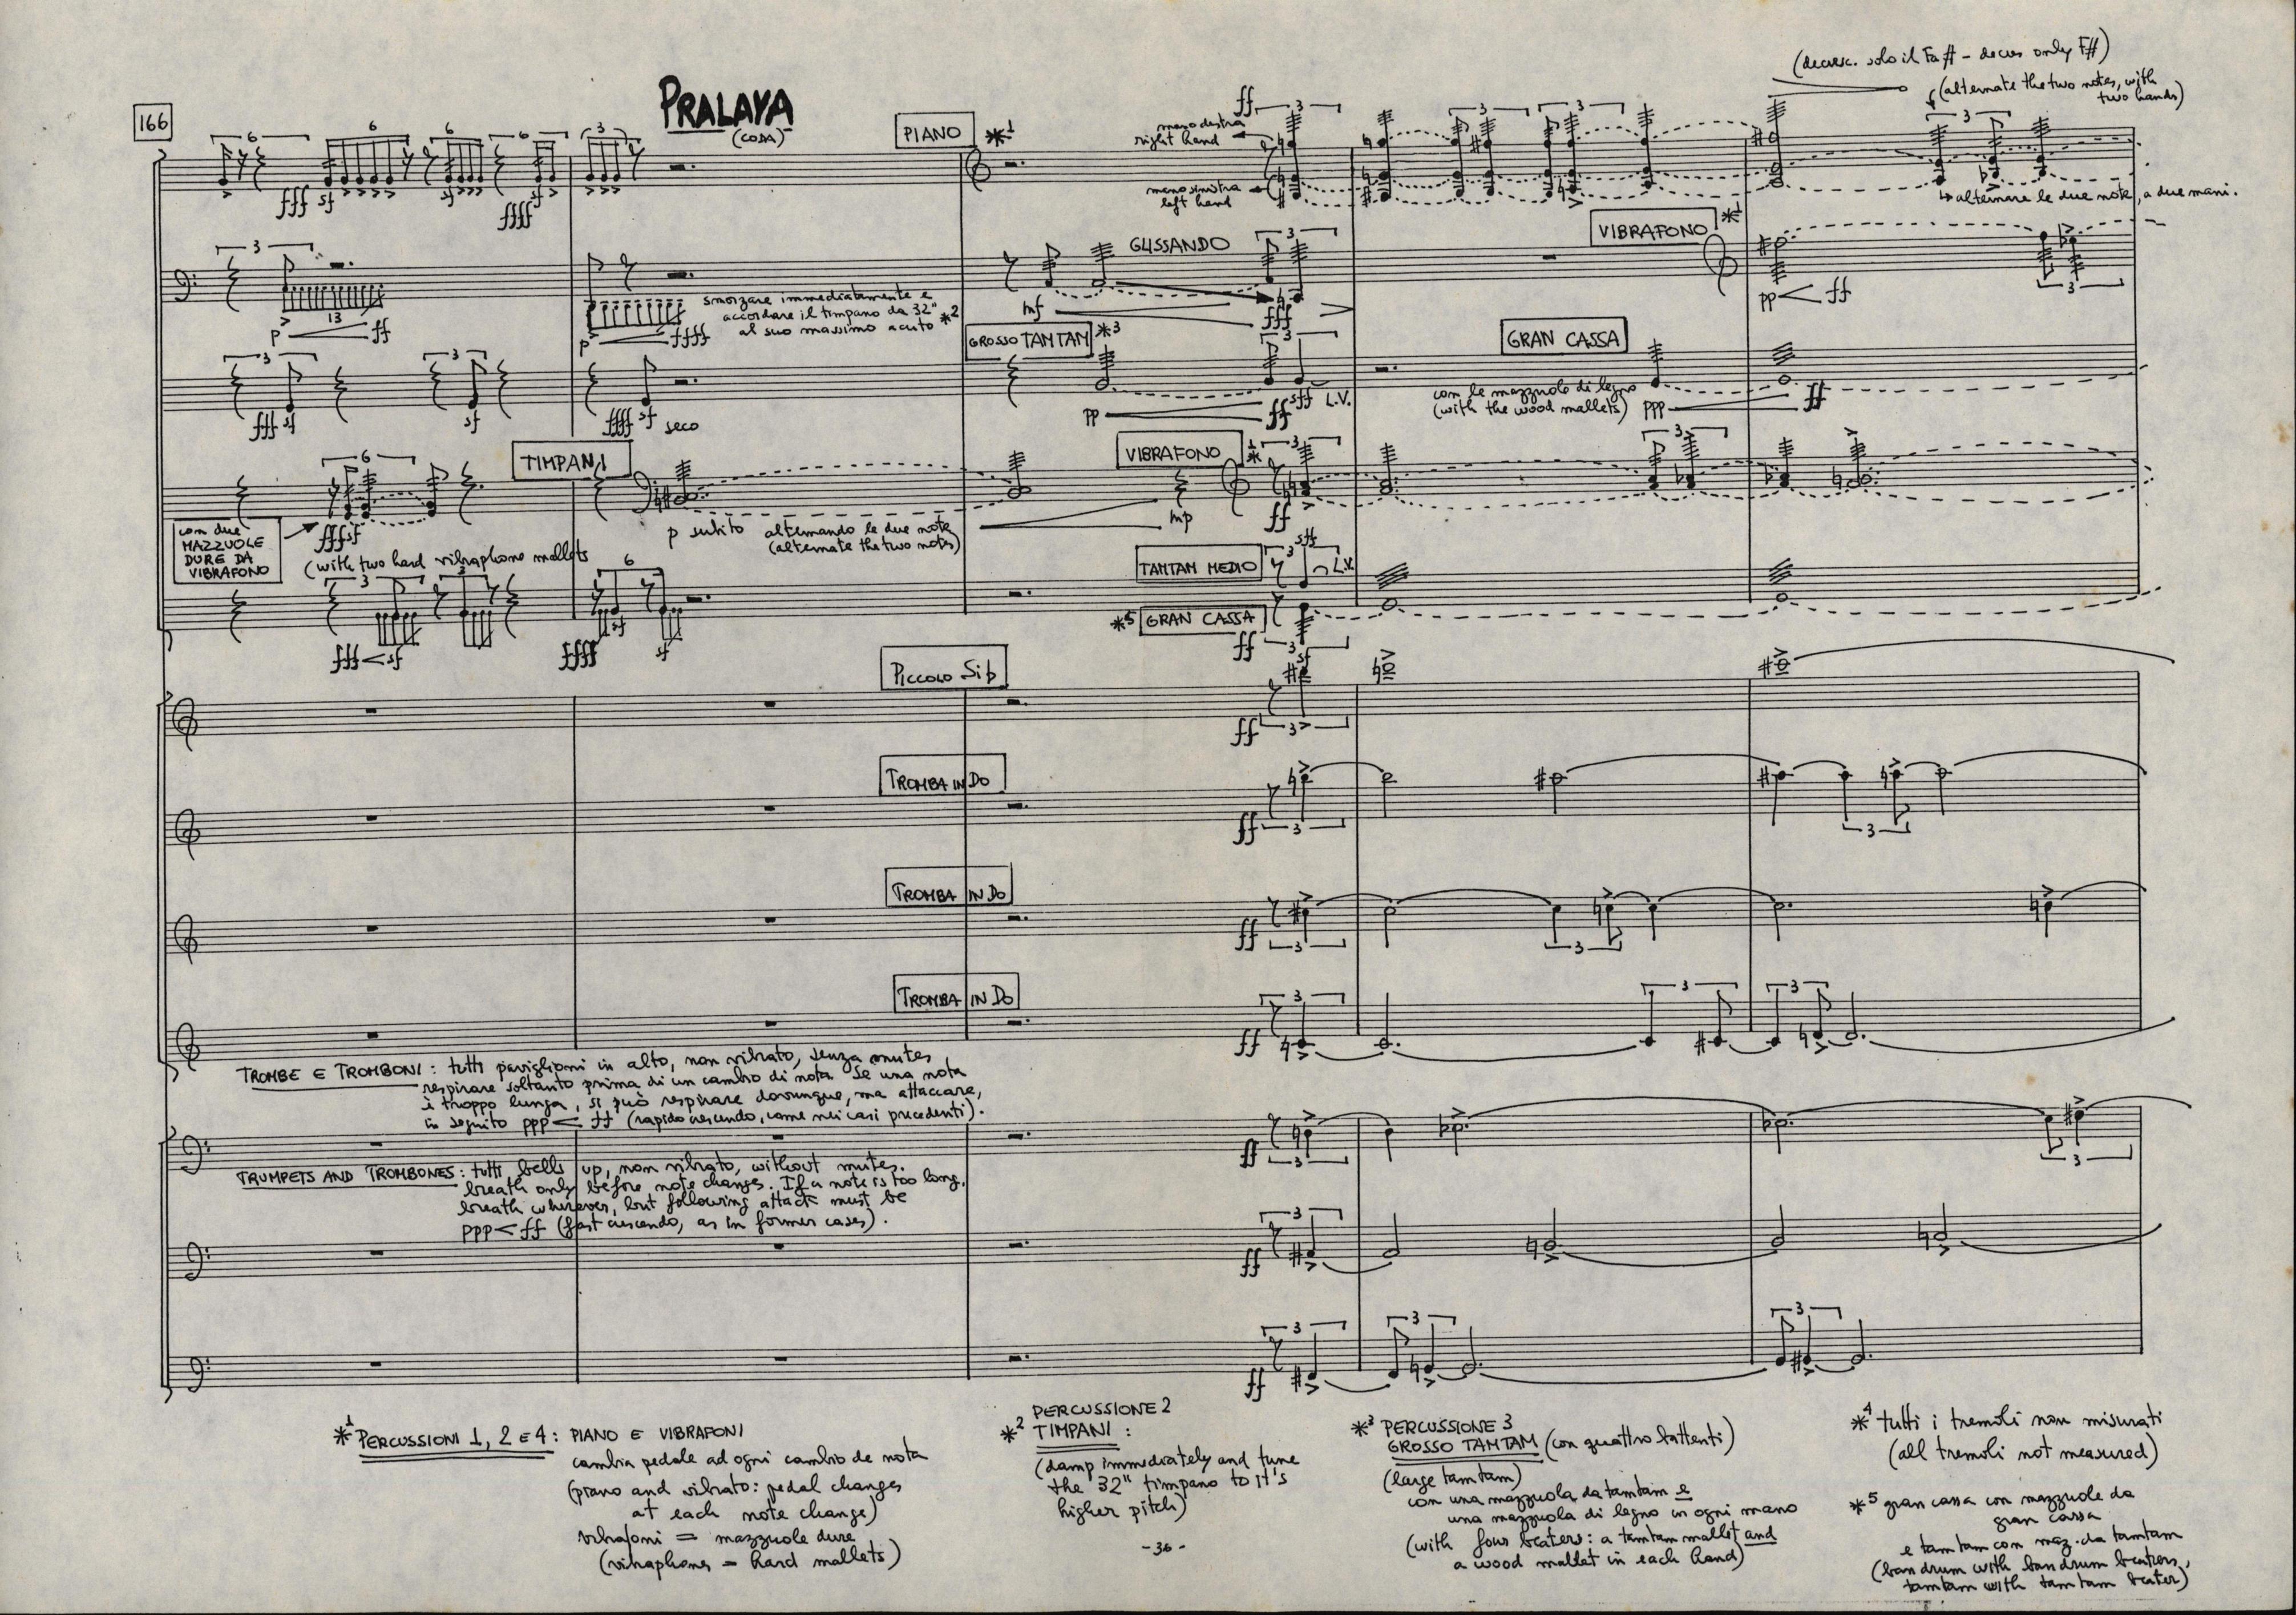 (decresc. solo il Fa# - decres only F#)
(alternate the two notes, with
two hands)
PRALAYA
(CODA)
166
PIANO
*1
ff
3
mano destra
right hand
mano sinistra
left hand
6
6
6
6
3
3
3
3
fff sf
sf
sf
ffff
alternare le due note, a due mani.
VIBRAFONO
*1
3
13
p
ff
p
ffff
smorzare immediatamente e
accordare il timpano da 32"
al suo massimo acuto *2
GLISSANDO
3
mf
fff
pp
ff
3
GROSSO TAMTAM
*3
GRAN CASSA
3
3
3
fff sf
sf
ffff sf
seco
pp
ff
sff
L.V.
con le mazzuole di legno
(with the wood mallets)
ppp
ff
6
TIMPANI
VIBRAFONO
*1
3
3
fff sf
con due
MAZZUOLE
DURE DA
VIBRAFONO
(with two hard vibraphone mallets
p subito
alternando le due note
(alternate the two notes)
mp
ff
TAMTAM MEDIO
sff
3
L.V.
*5
GRAN CASSA
ff
3
3
3
6
fff
sf
ffff
sf
sf
Piccolo Sib
sf
ff
3
TROMBA IN DO
ff
3
3
TROMBA IN DO
ff
3
3
TROMBA IN DO
3
3
3
ff
TROMBE E TROMBONI : tutti paviglioni in alto, non vibrato, senza mutes
respirare soltanto prima di un cambio di nota. Se una nota
è troppo lunga, si può respirare dovunque, ma attaccare,
in seguito ppp < ff (rapido crescendo, come nei casi precedenti).
ff
3
3
TRUMPETS AND TROMBONES : tutti bells up, non vibrato, without mutes.
breath only before note changes. If a note is too long,
breath wherever, but following attack must be
ppp < ff (fast crescendo, as in former cases).
3
ff
3
3
3
ff
*1 PERCUSSIONI 1, 2 E 4 : PIANO E VIBRAFONI
cambia pedale ad ogni cambio de nota
(piano and vibrato: pedal changes
at each note change)
vibrafoni = mazzuole dure
(vibraphones = hard mallets)
PERCUSSIONE 2
*2 TIMPANI :
(damp immediately and tune
the 32" timpano to it's
higher pitch)
- 36 -
*3 PERCUSSIONE 3
GROSSO TAMTAM (con quattro battenti)
(large tam tam)
con una mazzuola da tamtam e
una mazzuola di legno in ogni mano
(with four beaters: a tamtam mallet and
a wood mallet in each hand)
*4 tutti i tremoli non misurati
(all tremoli not measured)
*5 gran cassa con mazzuole da
gran cassa
e tam tam con maz. da tamtam
(bas drum with bas drum beaters,
tamtam with tam tam beater)